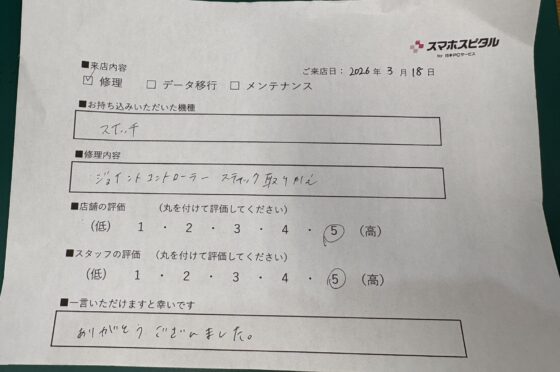 スマホスピタル
by 日本PCサービス
■来店内容
ご来店日：2026年3月18日
☑ 修理 □ データ移行 □ メンテナンス
■お持ち込みいただいた機種
スイッチ
■修理内容
ジョイントコントローラー スティック取りかえ
■店舗の評価 （丸を付けて評価してください）
（低） 1 ・ 2 ・ 3 ・ 4 ・ 5 （高）
■スタッフの評価 （丸を付けて評価してください）
（低） 1 ・ 2 ・ 3 ・ 4 ・ 5 （高）
■一言いただけますと幸いです
ありがとうございました。